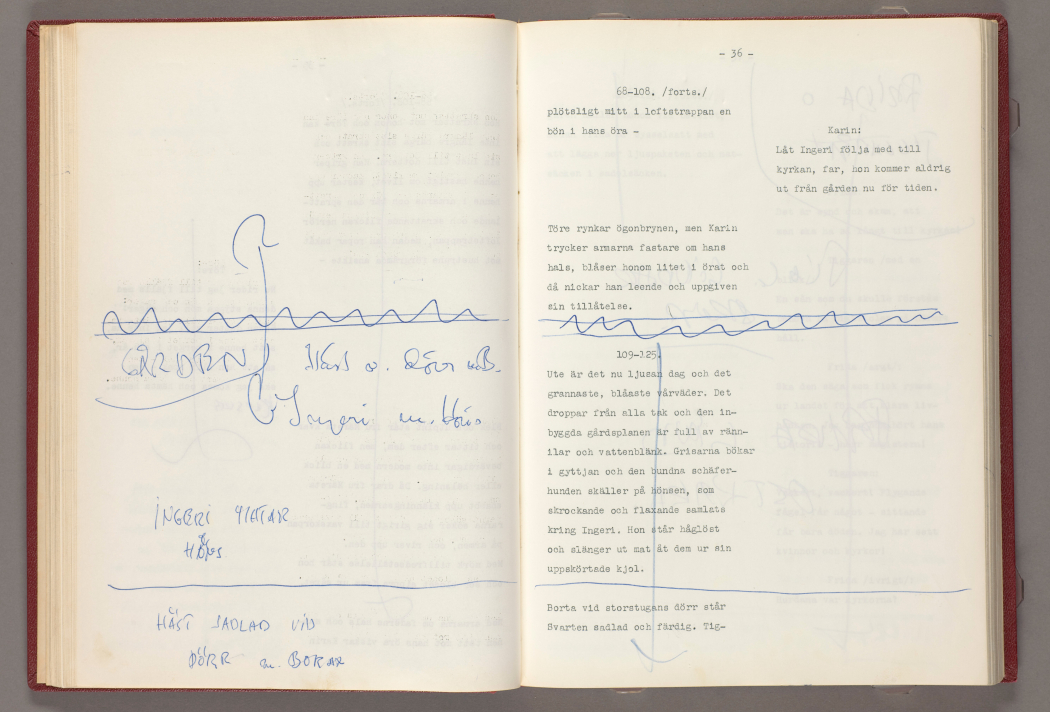 GÅRDEN
Ingeri m. Höns
INGERI MATAR
HÖNS
HÄST SADLAD VID
DÖRR m.
- 36 -
68-108. /forts./
plötsligt mitt i loftstrappan en
bön i hans öra -
Karin:
Låt Ingeri följa med till
kyrkan, far, hon kommer aldrig
ut från gården nu för tiden.
Töre rynkar ögonbrynen, men Karin
trycker armarna fastare om hans
hals, blåser honom litet i örat och
då nickar han leende och uppgiven
sin tillåtelse.
109-125.
Ute är det nu ljusan dag och det
grannaste, blåaste vårväder. Det
droppar från alla tak och den in-
byggda gårdsplanen är full av ränn-
ilar och vattenblänk. Grisarna bökar
i gyttjan och den bundna schäfer-
hunden skäller på hönsen, som
skrockande och flaxande samlats
kring Ingeri. Hon står håglöst
och slänger ut mat åt dem ur sin
uppskörtade kjol.
Borta vid storstugans dörr står
Svarten sadlad och färdig. Tig-